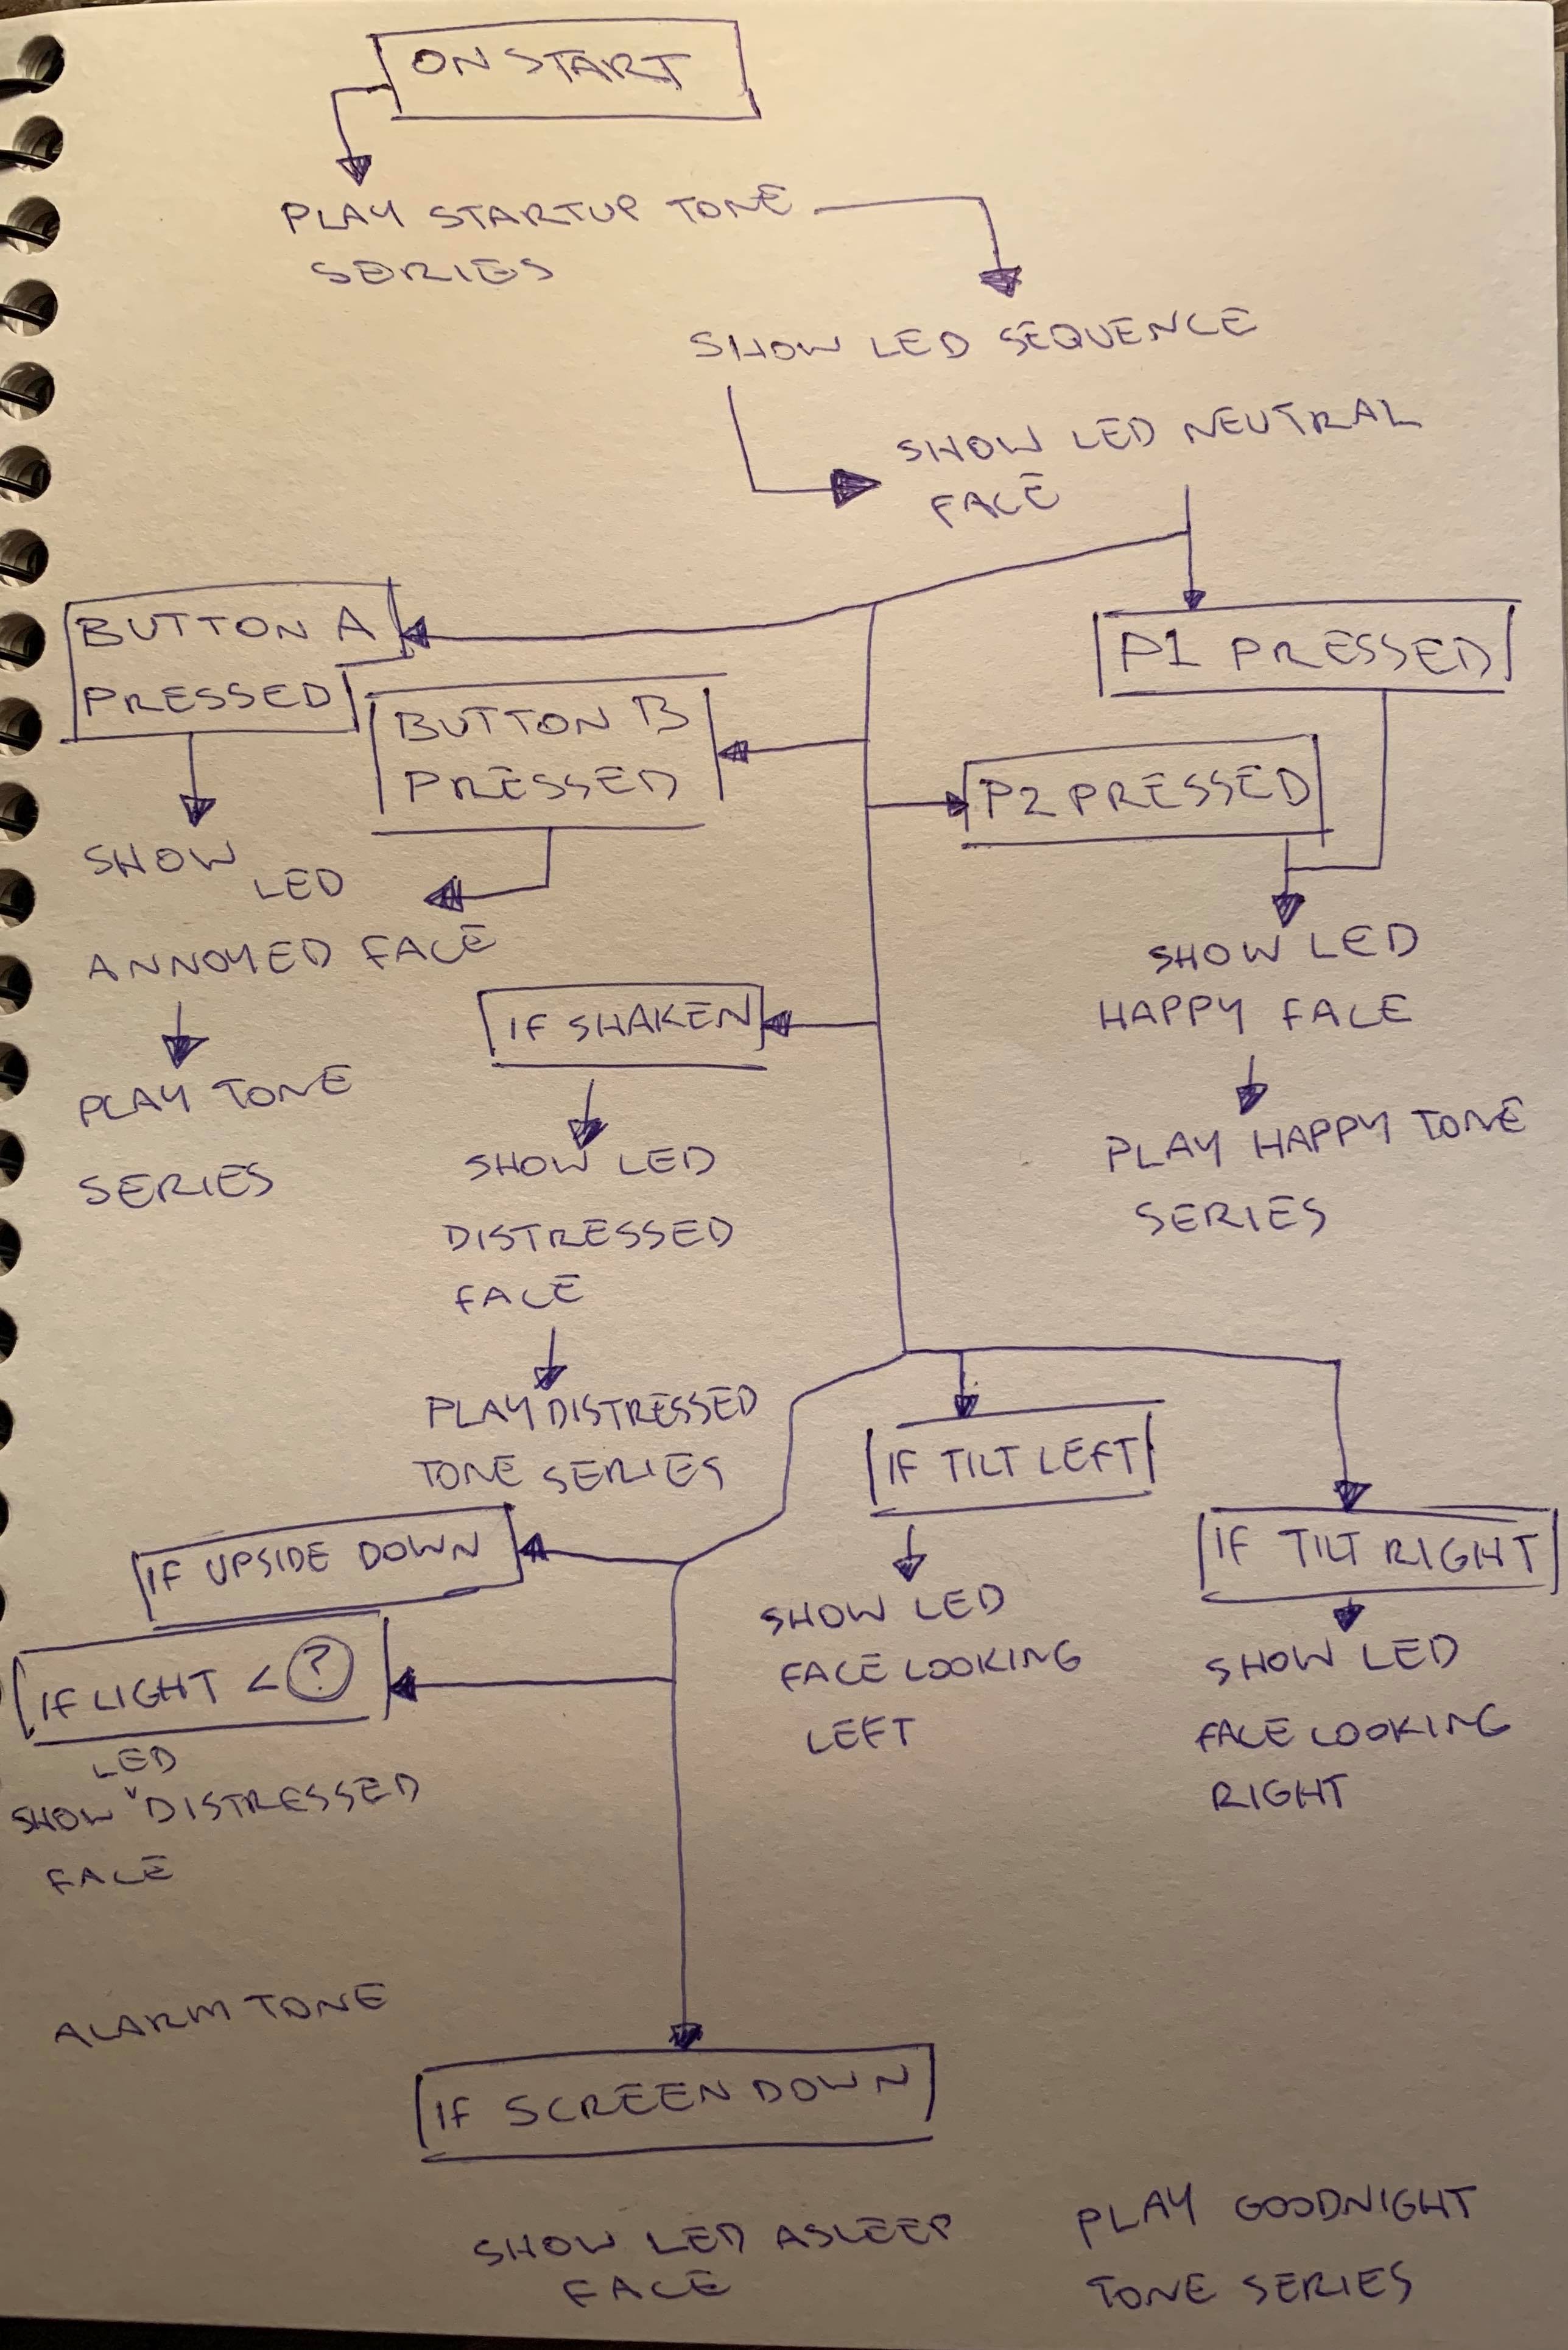 ON START
PLAY STARTUP TONE
SERIES
SHOW LED SEQUENCE
SHOW LED NEUTRAL
FACE
BUTTON A
PRESSED
BUTTON B
PRESSED
P1 PRESSED
P2 PRESSED
SHOW LED
ANNOYED FACE
PLAY TONE
SERIES
SHOW LED
HAPPY FACE
PLAY HAPPY TONE
SERIES
IF SHAKEN
SHOW LED
DISTRESSED
FACE
PLAY DISTRESSED
TONE SERIES
IF TILT LEFT
SHOW LED
FACE LOOKING
LEFT
IF TILT RIGHT
SHOW LED
FACE LOOKING
RIGHT
IF UPSIDE DOWN
IF LIGHT < ?
LED
SHOW DISTRESSED
FACE
ALARM TONE
IF SCREEN DOWN
SHOW LED ASLEEP
FACE
PLAY GOODNIGHT
TONE SERIES